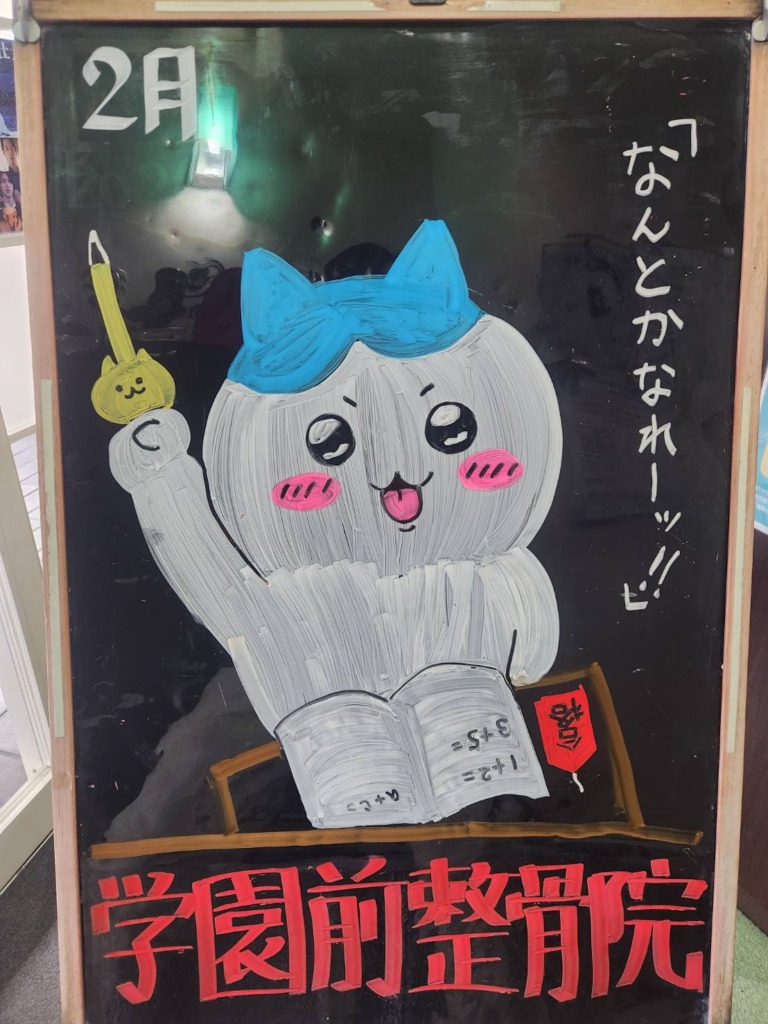 2月
「なんとかなれーッ!!」
合格
3+5=
1+2=
a+c=
学園前整骨院